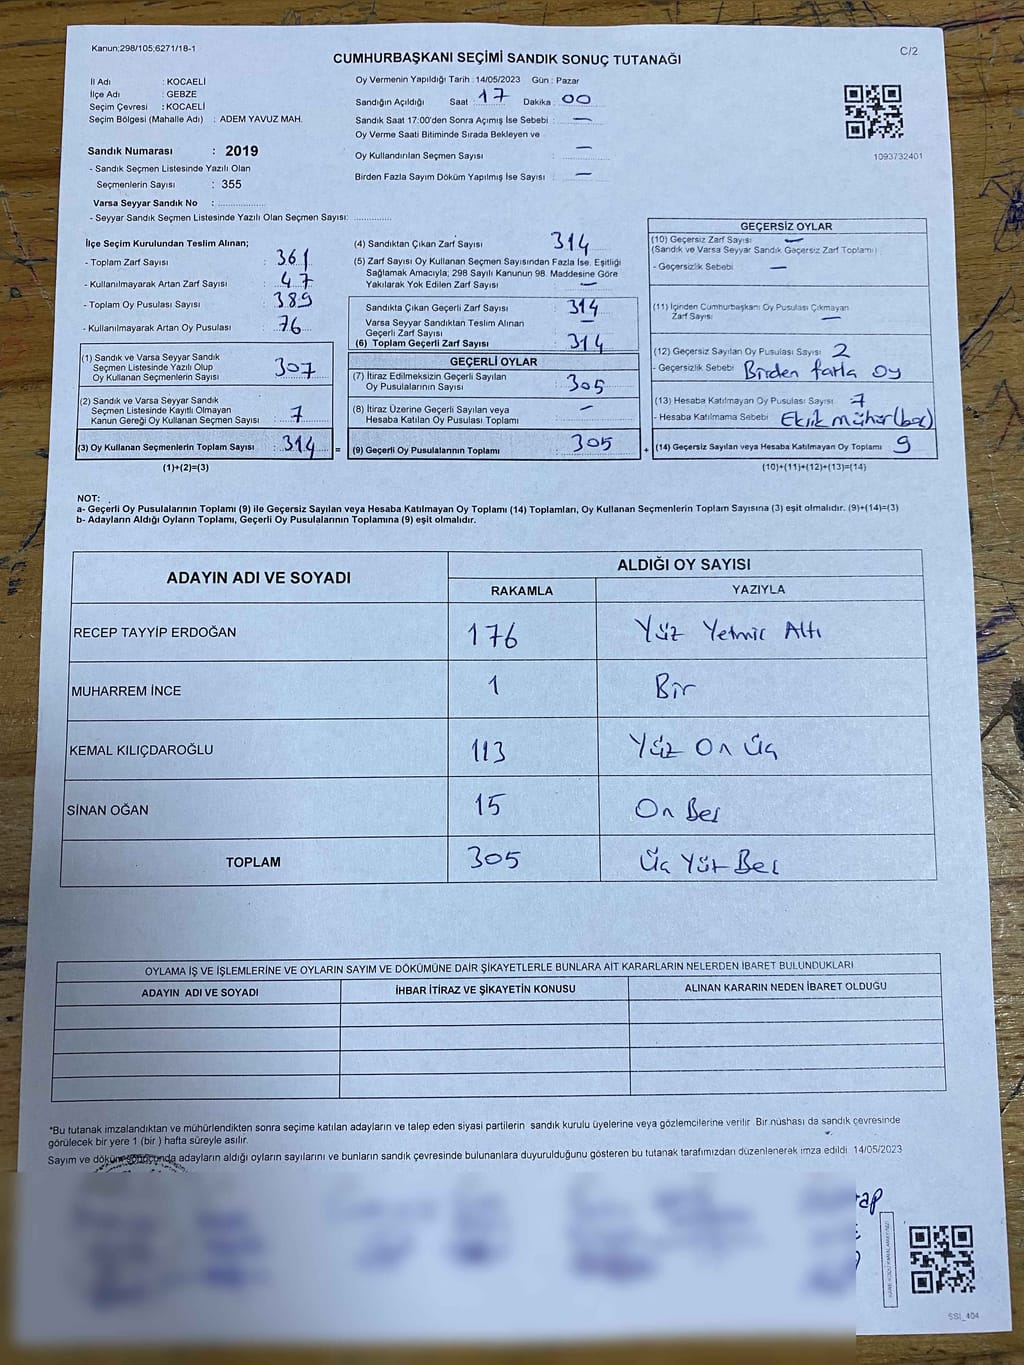 Kanun;298/105;6271/18-1
C/2
CUMHURBAŞKANI SEÇİMİ SANDIK SONUÇ TUTANAĞI
İl Adı : KOCAELİ
İlçe Adı : GEBZE
Seçim Çevresi : KOCAELİ
Seçim Bölgesi (Mahalle Adı) : ADEM YAVUZ MAH.
Oy Vermenin Yapıldığı Tarih : 14/05/2023 Gün : Pazar
Sandığın Açıldığı Saat : 17 Dakika : 00
Sandık Saat 17:00'den Sonra Açımış İse Sebebi : —
Oy Verme Saati Bitiminde Sırada Bekleyen ve
Oy Kullandırılan Seçmen Sayısı : —
Birden Fazla Sayım Döküm Yapılmış İse Sayısı : —
1093732401
Sandık Numarası : 2019
- Sandık Seçmen Listesinde Yazılı Olan
Seçmenlerin Sayısı : 355
Varsa Seyyar Sandık No :
- Seyyar Sandık Seçmen Listesinde Yazılı Olan Seçmen Sayısı:
İlçe Seçim Kurulundan Teslim Alınan;
- Toplam Zarf Sayısı : 361
- Kullanılmayarak Artan Zarf Sayısı : 47
- Toplam Oy Pusulası Sayısı : 389
- Kullanılmayarak Artan Oy Pusulası : 76
(1) Sandık ve Varsa Seyyar Sandık
Seçmen Listesinde Yazılı Olup
Oy Kullanan Seçmenlerin Sayısı : 307
(2) Sandık ve Varsa Seyyar Sandık
Seçmen Listesinde Kayıtlı Olmayan
Kanun Gereği Oy Kullanan Seçmen Sayısı : 7
(3) Oy Kullanan Seçmenlerin Toplam Sayısı : 314 =
(1)+(2)=(3)
(4) Sandıktan Çıkan Zarf Sayısı : 314
(5) Zarf Sayısı Oy Kullanan Seçmen Sayısından Fazla İse, Eşitliği
Sağlamak Amacıyla; 298 Sayılı Kanunun 98. Maddesine Göre
Yakılarak Yok Edilen Zarf Sayısı : —
Sandıkta Çıkan Geçerli Zarf Sayısı : 314
Varsa Seyyar Sandıktan Teslim Alınan
Geçerli Zarf Sayısı : —
(6) Toplam Geçerli Zarf Sayısı : 314
GEÇERLİ OYLAR
(7) İtiraz Edilmeksizin Geçerli Sayılan
Oy Pusulalarının Sayısı : 305
(8) İtiraz Üzerine Geçerli Sayılan veya
Hesaba Katılan Oy Pusulası Toplamı : —
(9) Geçerli Oy Pusulalarının Toplamı : 305 +
GEÇERSİZ OYLAR
(10) Geçersiz Zarf Sayısı : —
(Sandık ve Varsa Seyyar Sandık Geçersiz Zarf Toplamı)
- Geçersizlik Sebebi : —
(11) İçinden Cumhurbaşkanı Oy Pusulası Çıkmayan
Zarf Sayısı : —
(12) Geçersiz Sayılan Oy Pusulası Sayısı : 2
- Geçersizlik Sebebi : Birden fazla oy
(13) Hesaba Katılmayan Oy Pusulası Sayısı : 7
- Hesaba Katılmama Sebebi : Eksik mühür (boş)
(14) Geçersiz Sayılan veya Hesaba Katılmayan Oy Toplamı : 9
(10)+(11)+(12)+(13)=(14)
NOT:
a- Geçerli Oy Pusulalarının Toplamı (9) ile Geçersiz Sayılan veya Hesaba Katılmayan Oy Toplamı (14) Toplamları, Oy Kullanan Seçmenlerin Toplam Sayısına (3) eşit olmalıdır. (9)+(14)=(3)
b- Adayların Aldığı Oyların Toplamı, Geçerli Oy Pusulalarının Toplamına (9) eşit olmalıdır.
ADAYIN ADI VE SOYADI
ALDIĞI OY SAYISI
RAKAMLA YAZIYLA
RECEP TAYYİP ERDOĞAN 176 Yüz Yetmiş Altı
MUHARREM İNCE 1 Bir
KEMAL KILIÇDAROĞLU 113 Yüz On Üç
SİNAN OĞAN 15 On Beş
TOPLAM 305 Üç Yüz Beş
OYLAMA İŞ VE İŞLEMLERİNE VE OYLARIN SAYIM VE DÖKÜMÜNE DAİR ŞİKAYETLERLE BUNLARA AİT KARARLARIN NELERDEN İBARET BULUNDUKLARI
ADAYIN ADI VE SOYADI İHBAR İTİRAZ VE ŞİKAYETİN KONUSU ALINAN KARARIN NEDEN İBARET OLDUĞU
*Bu tutanak imzalandıktan ve mühürlendikten sonra seçime katılan adayların ve talep eden siyasi partilerin sandık kurulu üyelerine veya gözlemcilerine verilir Bir nüshası da sandık çevresinde
görülecek bir yere 1 (bir ) hafta süreyle asılır.
Sayım ve döküm sonucunda adayların aldığı oyların sayılarını ve bunların sandık çevresinde bulunanlara duyurulduğunu gösteren bu tutanak tarafımızdan düzenlenerek imza edildi 14/05/2023
SSI_404